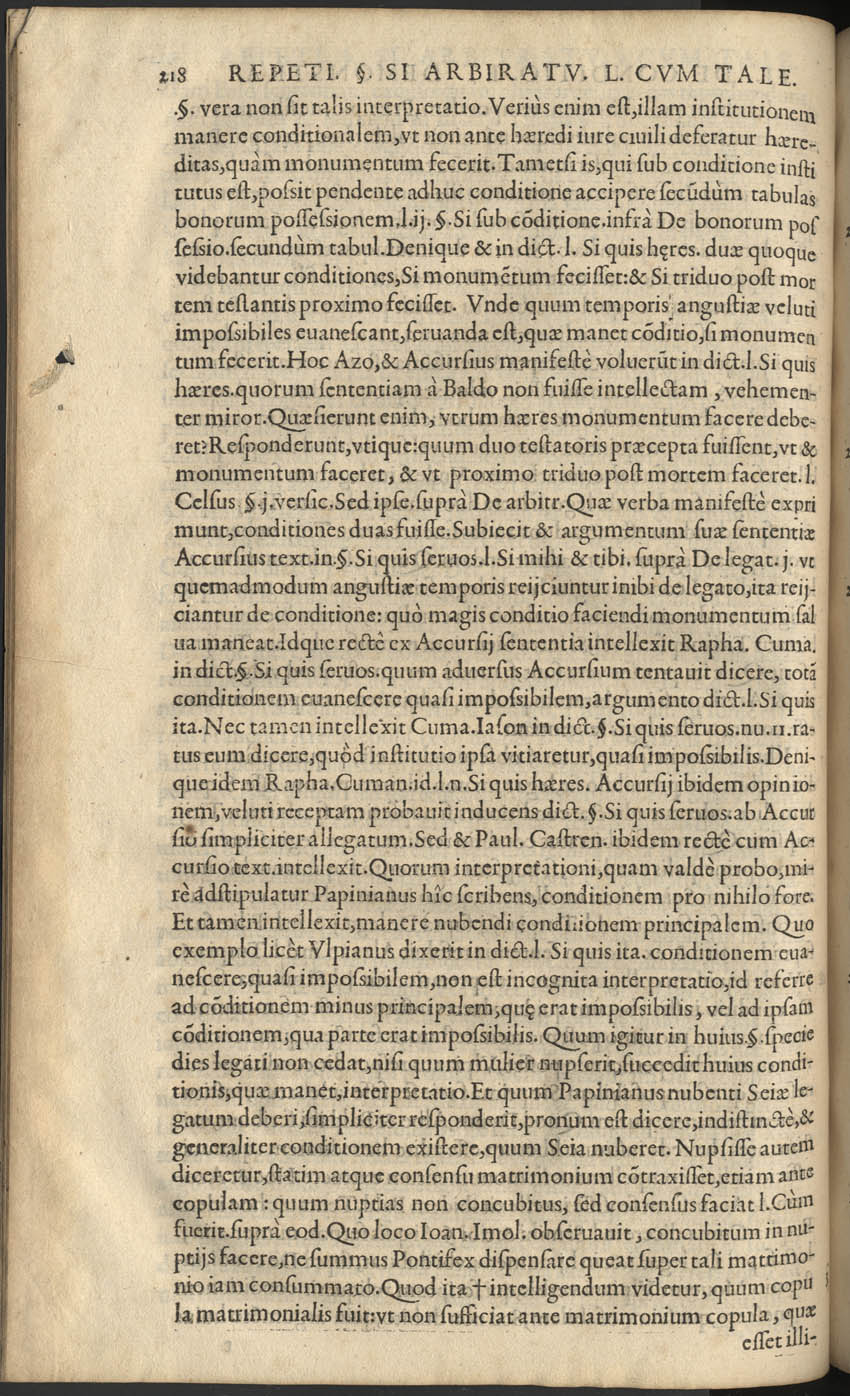 218 REPETI. §. SI ARBIRATV. L. CVM TALE.
.§. vera non ſit talis interpretatio. Veriùs enim eſt, illam inſtitutionem
manere conditionalem, vt non ante hæredi iure ciuili deferatur hære-
ditas, quàm monumentum fecerit. Tametſi is, qui ſub conditione inſti
tutus eſt, poſsit pendente adhuc conditione accipere ſecũdùm tabulas
bonorum poſſeſsionem. l. ij. §. Si ſub cõditione. infrà De bonorum poſ
ſeſsio. ſecundùm tabul. Denique & in dict. l. Si quis hęres. duæ quoque
videbantur conditiones, Si monumẽtum feciſſet: & Si triduo poſt mor
tem teſtantis proximo feciſſet. Vnde quum temporis anguſtiæ veluti
impoſsibiles euaneſcant, ſeruanda eſt, quæ manet cõditio, ſi monumen
tum fecerit. Hoc Azo, & Accurſius manifeſtè voluerũt in dict. l. Si quis
hæres. quorum ſententiam à Baldo non fuiſſe intellectam, vehemen-
ter miror. Quæſierunt enim, vtrum hæres monumentum facere debe-
ret? Reſponderunt, vtique: quum duo teſtatoris præcepta fuiſſent, vt &
monumentum faceret, & vt proximo triduo poſt mortem faceret. l.
Celſus §. j. verſic. Sed ipſe. ſuprà De arbitr. Quæ verba manifeſtè expri
munt, conditiones duas fuiſſe. Subiecit & argumentum ſuæ ſententiæ
Accurſius text. in. §. Si quis ſeruos. l. Si mihi & tibi. ſuprà De legat. j. vt
quemadmodum anguſtiæ temporis reijciuntur inibi de legato, ita reij-
ciantur de conditione: quò magis conditio faciendi monumentum ſal
ua maneat. Idque rectè ex Accurſij ſententia intellexit Rapha. Cuma.
in dict. §. Si quis ſeruos. quum aduerſus Accurſium tentauit dicere, totã
conditionem euaneſcere quaſi impoſsibilem, argumento dict. l. Si quis
ita. Nec tamen intellexit Cuma. Iaſon in dict. §. Si quis ſeruos. nu. 11. ra-
tus eum dicere, quòd inſtitutio ipſa vitiaretur, quaſi impoſsibilis. Deni-
que idem Rapha. Cuman. id. l. n. Si quis hæres. Accurſij ibidem opinio-
nem, veluti receptam probauit inducens dict. §. Si quis ſeruos. ab Accur
ſio ſimpliciter allegatum. Sed & Paul. Caſtren. ibidem rectè cum Ac-
curſio text. intellexit. Quorum interpretationi, quam valdè probo, mi-
rè adſtipulatur Papinianus hîc ſcribens, conditionem pro nihilo fore.
Et tamen intellexit, manere nubendi conditionem principalem. Quo
exemplo licèt Vlpianus dixerit in dict. l. Si quis ita. conditionem eua-
neſcere, quaſi impoſsibilem, non eſt incognita interpretatio, id referre
ad cõditionem minus principalem, quę erat impoſsibilis, vel ad ipſam
cõditionem, qua parte erat impoſsibilis. Quum igitur in huius. §. ſpecie
dies legati non cedat, niſi quum mulier nupſerit, ſuccedit huius condi-
tionis, quæ manet, interpretatio. Et quum Papinianus nubenti Seiæ le-
gatum deberi, ſimpliciter reſponderit, pronum eſt dicere, indiſtinctè, &
generaliter conditionem exiſtere, quum Seia nuberet. Nupſiſſe autem
diceretur, ſtatim atque conſenſu matrimonium cõtraxiſſet, etiam ante
copulam: quum nuptias non concubitus, ſed conſenſus faciat l. Cùm
fuerit. ſuprà eod. Quo loco Ioan. Imol. obſeruauit, concubitum in nu-
ptijs facere, ne ſummus Pontifex diſpenſare queat ſuper tali matrimo-
nio iam conſummato. Quod ita † intelligendum videtur, quum copu
la matrimonialis fuit: vt non ſufficiat ante matrimonium copula, quæ
eſſet illi-